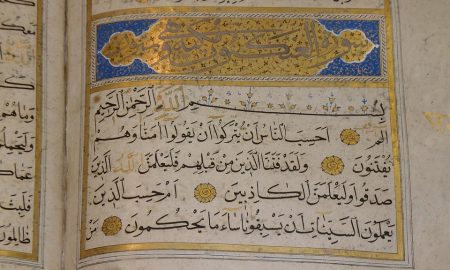 سورة العنكبوت
بسم الله الرحمن الرحيم
الم احسب الناس ان يتركوا ان يقولوا امنا وهم
يفتنون ولقد فتنا الذين من قبلهم فليعلمن الله الذين
صدقوا وليعلمن الكاذبين ام حسب الذين
يعملون السيئات ان يسبقونا ساء ما يحكمون من
وما هم
وليحملن
عما كا
فلبث
ظالمون